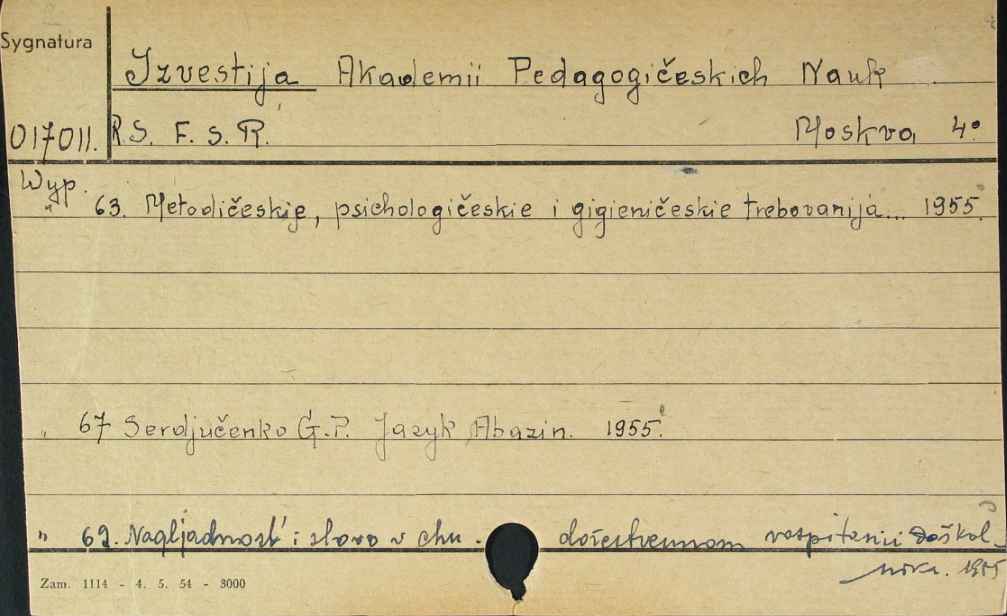 Sygnatura
Izvestija Akademii Pedagogičeskich Nauk
017011. R.S. F. S. R. Moskva 4°
Wyp.
" 63. Metodičeskie, psichologičeskie i gigieničeskie trebovanija... 1955.
" 67 Serdjučenko G.P. Jazyk Abazin. 1955.
" 69. Nagljadnost' i slovo v chu. dožestvennom vospitanii doškol.
nika. 1955
Zam. 1114 - 4. 5. 54 - 3000